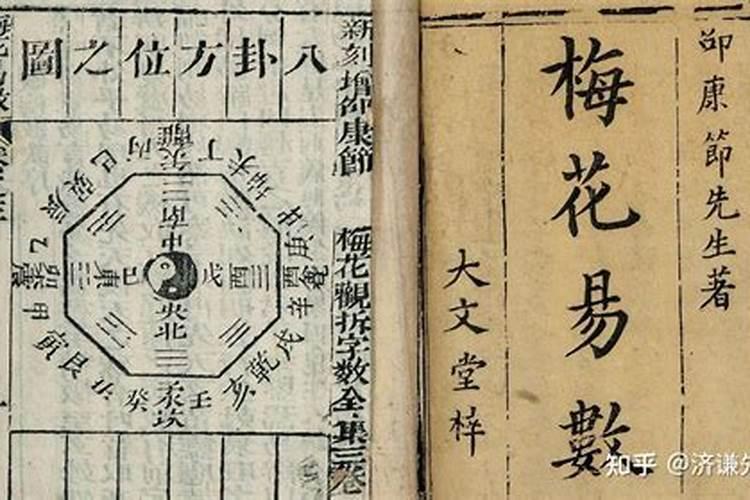 邵康節先生著
梅花易數
大文堂梓
新刻增邵康節 梅花觀拆字數全集三卷
八卦方位之圖
丙 午 離 丁
未 坤 申
巳 巽 辰
南
中
乙 卯 震 東 巳 戊 酉 酉 兌
甲
庚
辛
央
北
寅 艮 丑
戌 乾 亥
癸 子 坎 壬
知乎 @济谦